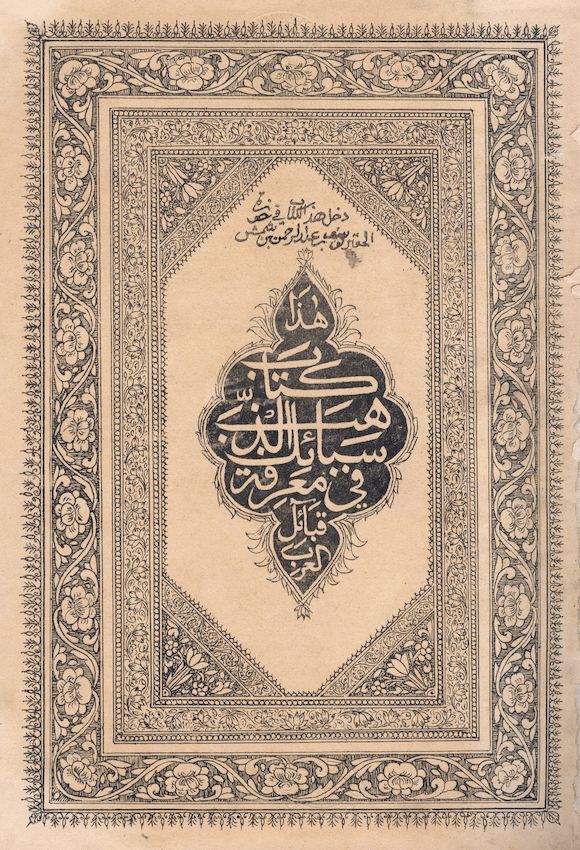 ١
دخل هذا الكتاب في حوزة
الحقير عبد الرحمن بن
هٰذَا
كتاب
سبائك الذّهب
في معرفة
قبائل
العرب